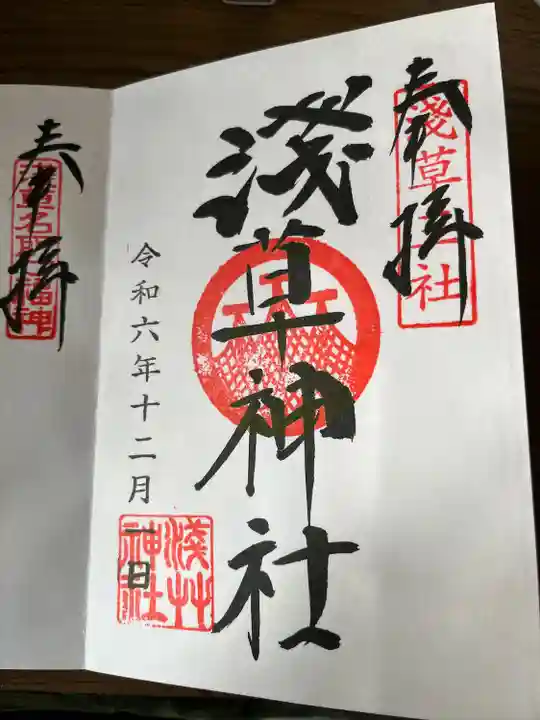 奉拝
淺草神社
淺草神社
令和六年十二月一日
淺草神社
奉拝
浅草名所七福神